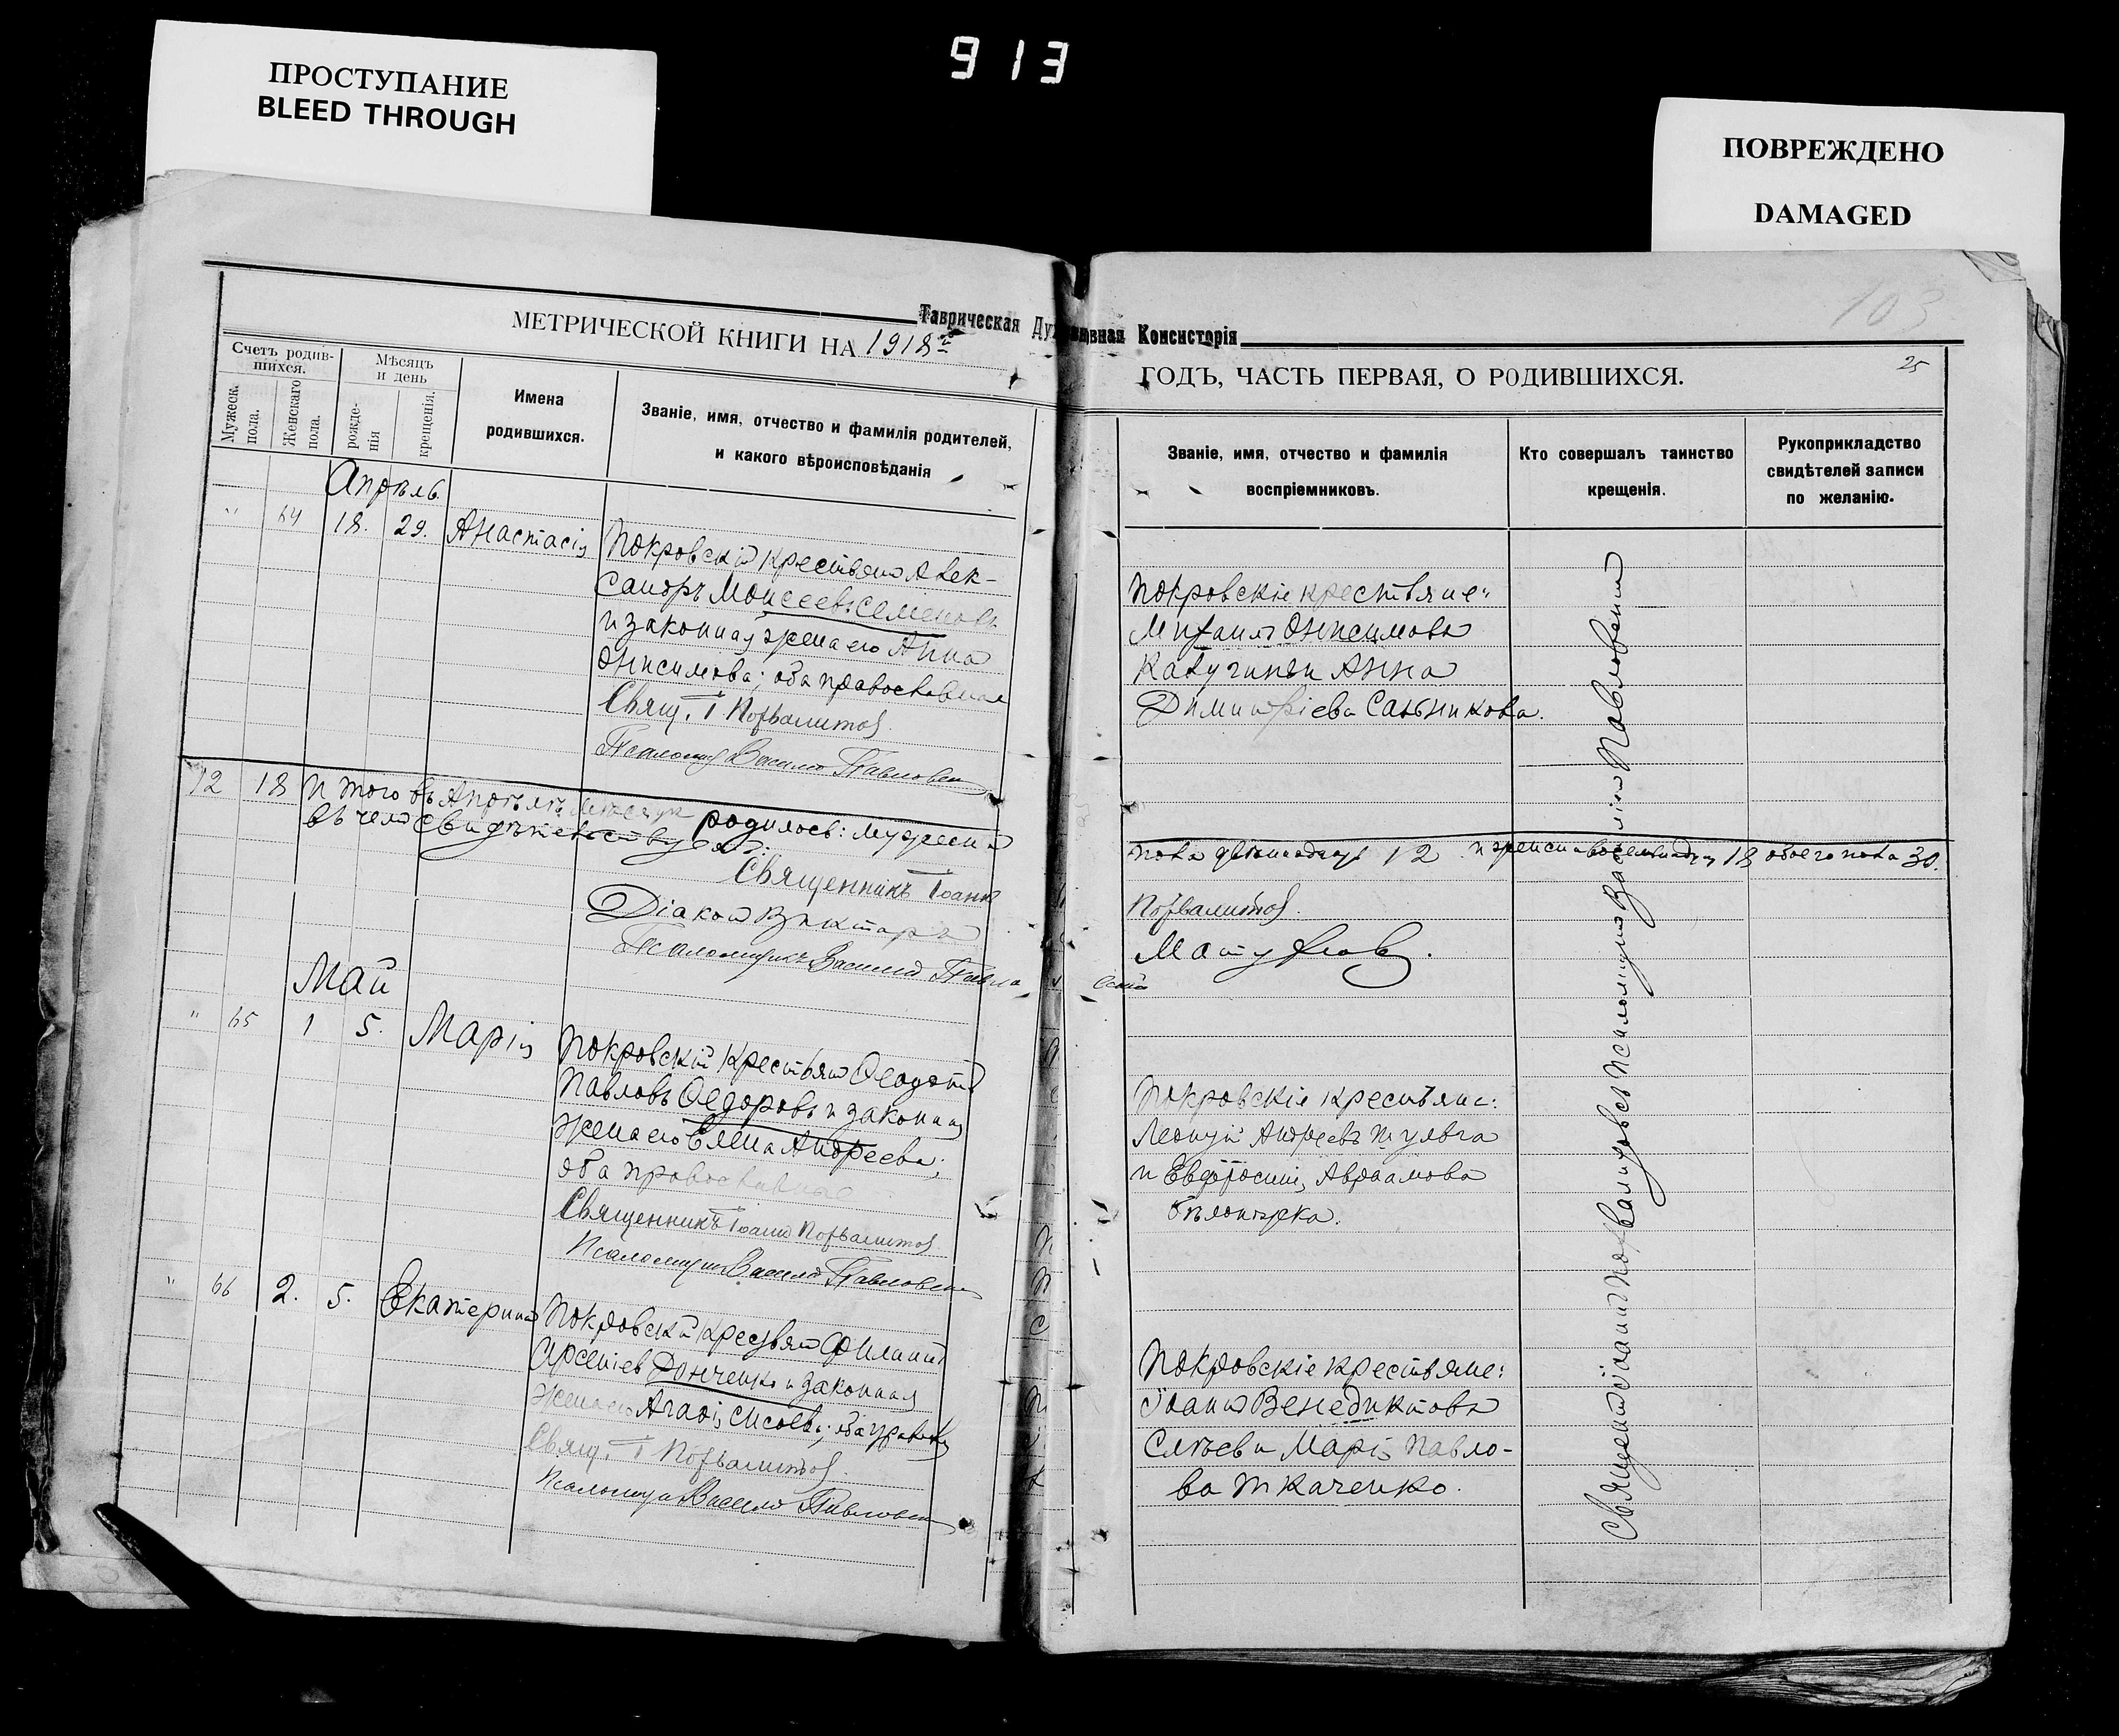 913
ПРОСТУПАНИЕ
BLEED THROUGH
ПОВРЕЖДЕНО
DAMAGED
103
25
Таврическая Духовная Консисторія
МЕТРИЧЕСКОЙ КНИГИ НА 1918 й
ГОДЪ, ЧАСТЬ ПЕРВАЯ, О РОДИВШИХСЯ.
Счетъ родив-
шихся.
Мужеск. пола.
Женскаго пола.
Мѣсяцъ
и день
рожде-
нія
крещенія.
Имена
родившихся.
Званіе, имя, отчество и фамилія родителей,
и какого вѣроисповѣданія
Званіе, имя, отчество и фамилія
воспріемниковъ.
Кто совершалъ таинство
крещенія.
Рукоприкладство
свидѣтелей записи
по желанію.
Апрѣль.
" 64 18. 29. Анастасія
Покровскій крестьянинъ Алек-
сандръ Моисеевъ Семеновъ
и законная жена его Анна
Онисимова; оба православные
Свящ. І
Псаломщ Василій Павловскій
Покровскіе крестьяне:
Михаилъ Онисимовъ
Калугинъ и Анна
Димитріева Сальникова.
12 18 Итого въ Апрѣлѣ мѣсяцѣ родилось: мужеска
въ чемъ свидѣтельствуемъ:
пола двѣнадцать 12 и женска восемнадцать 18 обоего пола 30.
Священникъ Іоаннъ
Діаконъ Викторъ
Псаломщикъ Василій Павловскій
Май
" 65 1 5. Марія
Покровскій крестьянинъ Ѳеодотъ
Павловъ Ѳедоровъ и законная
жена его Елена Андреева;
оба православные
Священникъ Іоаннъ
Псаломщикъ Василій Павловскій
Покровскіе крестьяне:
Леонтій Андреевъ Шульга
и Евфросинія Авраамова
" 66 2. 5. Екатерина
Покровскій крестьянинъ Филиппъ
Арсеніевъ Донченко и законная
жена его Агафія Сисоева; оба правосл
Свящ. І
Псаломщикъ Василій Павловскій
Покровскіе крестьяне:
Іоаннъ Венедиктовъ
и Марія Павло-
ва Ткаченко.
Священникъ Іоаннъ
Псаломщикъ Василій Павловскій